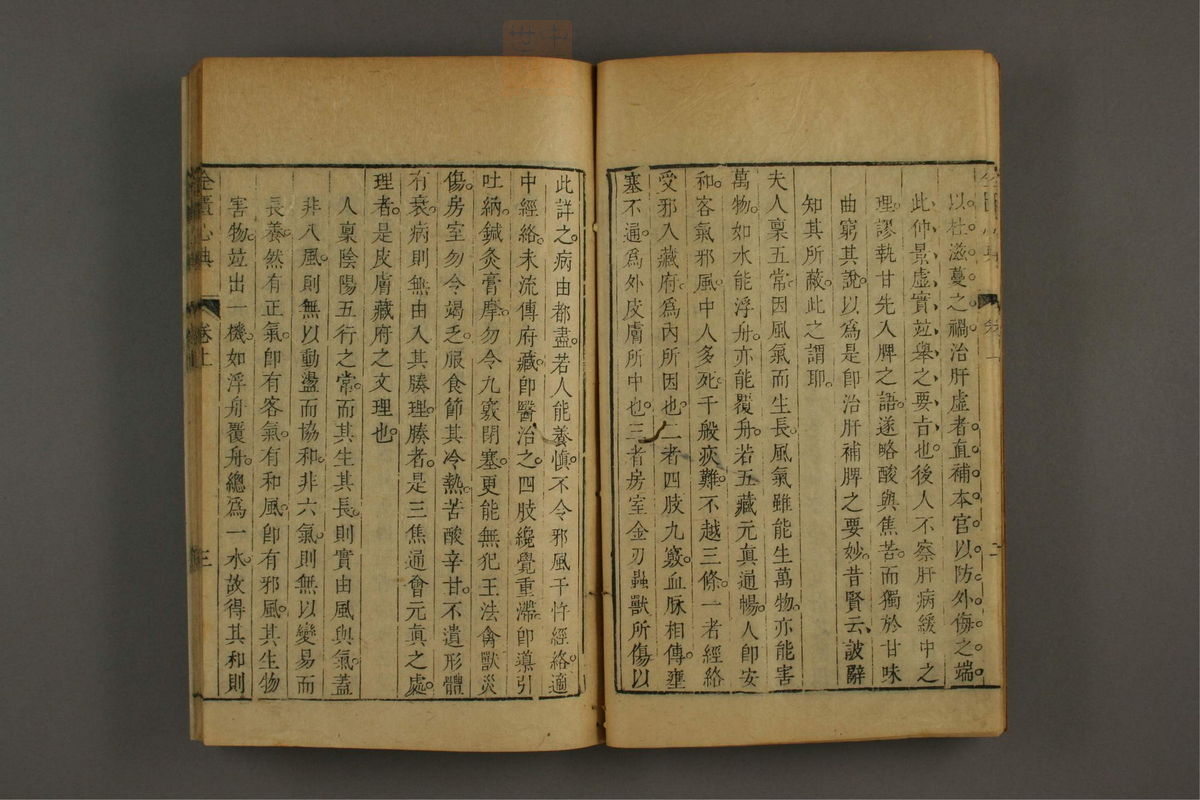 以杜滋蔓之禍治肝虛者直補本官以防外侮之端
此仲景虛實並舉之要旨也後人不察肝病緩中之
理謬執甘先入脾之語遂略酸與焦苦而獨於甘味
曲窮其說以爲是卽治肝補脾之要妙昔賢云詖辭
知其所蔽此之謂耶
夫人稟五常因風氣而生長風氣雖能生萬物亦能害
萬物如水能浮舟亦能覆舟若五藏元眞通暢人卽安
和客氣邪風中人多死千般疢難不越三條一者經絡
受邪入藏府爲內所因也二者四肢九竅血脉相傳壅
塞不通爲外皮膚所中也三者房室金刃蟲獸所傷以
此詳之病由都盡若人能養愼不令邪風干忤經絡適
中經絡未流傳府藏卽醫治之四肢纔覺重滯卽導引
吐納鍼灸膏摩勿令九竅閉塞更能無犯王法禽獸災
傷房室勿令竭乏服食節其冷熱苦酸辛甘不遺形體
有衰病則無由入其腠理腠者是三焦通會元眞之處
理者是皮膚藏府之文理也
人稟陰陽五行之常而其生其長則實由風與氣蓋
非八風則無以動盪而協和非六氣則無以變易而
長養然有正氣卽有客氣有和風卽有邪風其生物
害物並出一機如浮舟覆舟總爲一水故得其和則
金匱心典
卷上
三